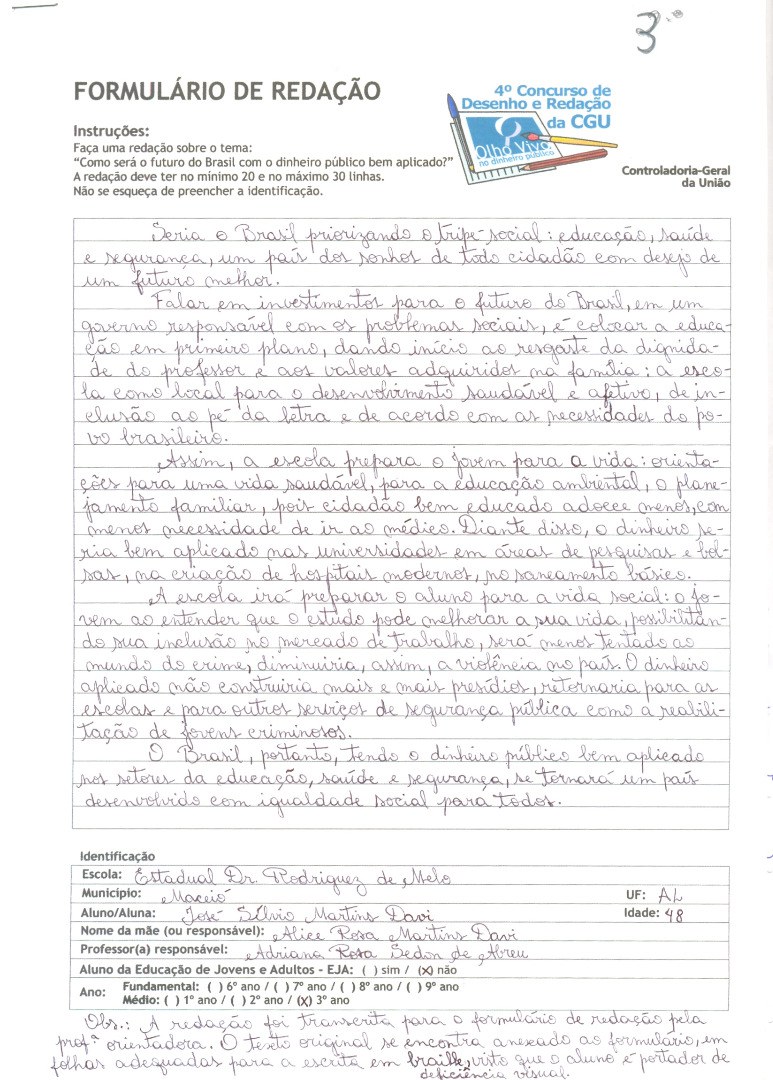 3º
FORMULÁRIO DE REDAÇÃO
4º Concurso de
Desenho e Redação
da CGU
Olho Vivo
no dinheiro público
Controladoria-Geral
da União
Instruções:
Faça uma redação sobre o tema:
“Como será o futuro do Brasil com o dinheiro público bem aplicado?”
A redação deve ter no mínimo 20 e no máximo 30 linhas.
Não se esqueça de preencher a identificação.
Seria o Brasil priorizando o tripé social: educação, saúde
e segurança, um país dos sonhos de todo cidadão com desejo de
um futuro melhor.
Falar em investimentos para o futuro do Brasil, em um
governo responsável com os problemas sociais, é colocar a educa-
ção em primeiro plano, dando início ao resgaste da dignida-
de do professor e aos valores adquiridos na família; a esco-
la como local para o desenvolvimento saudável e afetivo, de in-
clusão ao pé da letra e de acordo com as necessidades do po-
vo brasileiro.
Assim, a escola prepara o jovem para a vida: orienta-
ções para uma vida saudável, para a educação ambiental, o plane-
jamento familiar, pois cidadão bem educado adoece menos, com
menos necessidade de ir ao médico. Diante disso, o dinheiro se-
ria bem aplicado nas universidades em áreas de pesquisas e bol-
sas, na criação de hospitais modernos, no saneamento básico.
A escola irá preparar o aluno para a vida social: o jo-
vem ao entender que o estudo pode melhorar a sua vida, possibilitan-
do sua inclusão no mercado de trabalho, será menos tentado ao
mundo do crime, diminuiria, assim, a violência no país. O dinheiro
aplicado não construiria mais e mais presídios, retornaria para as
escolas e para outros serviços de segurança pública como a reabili-
tação de jovens criminosos.
O Brasil, portanto, tendo o dinheiro público bem aplicado
nos setores da educação, saúde e segurança, se tornará um país
desenvolvido com igualdade social para todos.
Identificação
Escola: Estadual Dr. Rodriguez de Melo
Município: Maceió UF: AL
Aluno/Aluna: José Sílvio Martins Davi Idade: 48
Nome da mãe (ou responsável): Alice Rosa Martins Davi
Professor(a) responsável: Adriana Rosa Sedon de Abreu
Aluno da Educação de Jovens e Adultos - EJA: ( ) sim / (X) não
Ano: Fundamental: ( ) 6º ano / ( ) 7º ano / ( ) 8º ano / ( ) 9º ano
Médio: ( ) 1º ano / ( ) 2º ano / (X) 3º ano
Obs.: A redação foi transcrita para o formulário de redação pela
profª orientadora. O texto original se encontra anexado ao formulário, em
folhas adequadas para a escrita em braille, visto que o aluno é portador de
deficiência visual.